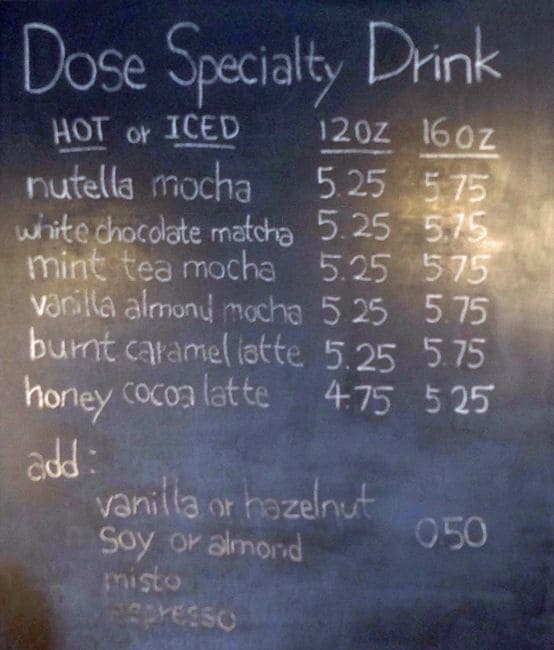 Dose Specialty Drink
HOT or ICED 12oz 16oz
nutella mocha 5.25 5.75
white chocolate matcha 5.25 5.75
mint tea mocha 5.25 5.75
vanilla almond mocha 5.25 5.75
burnt caramel latte 5.25 5.75
honey cocoa latte 4.75 5.25
add:
vanilla or hazelnut
soy or almond 0.50
misto
espresso